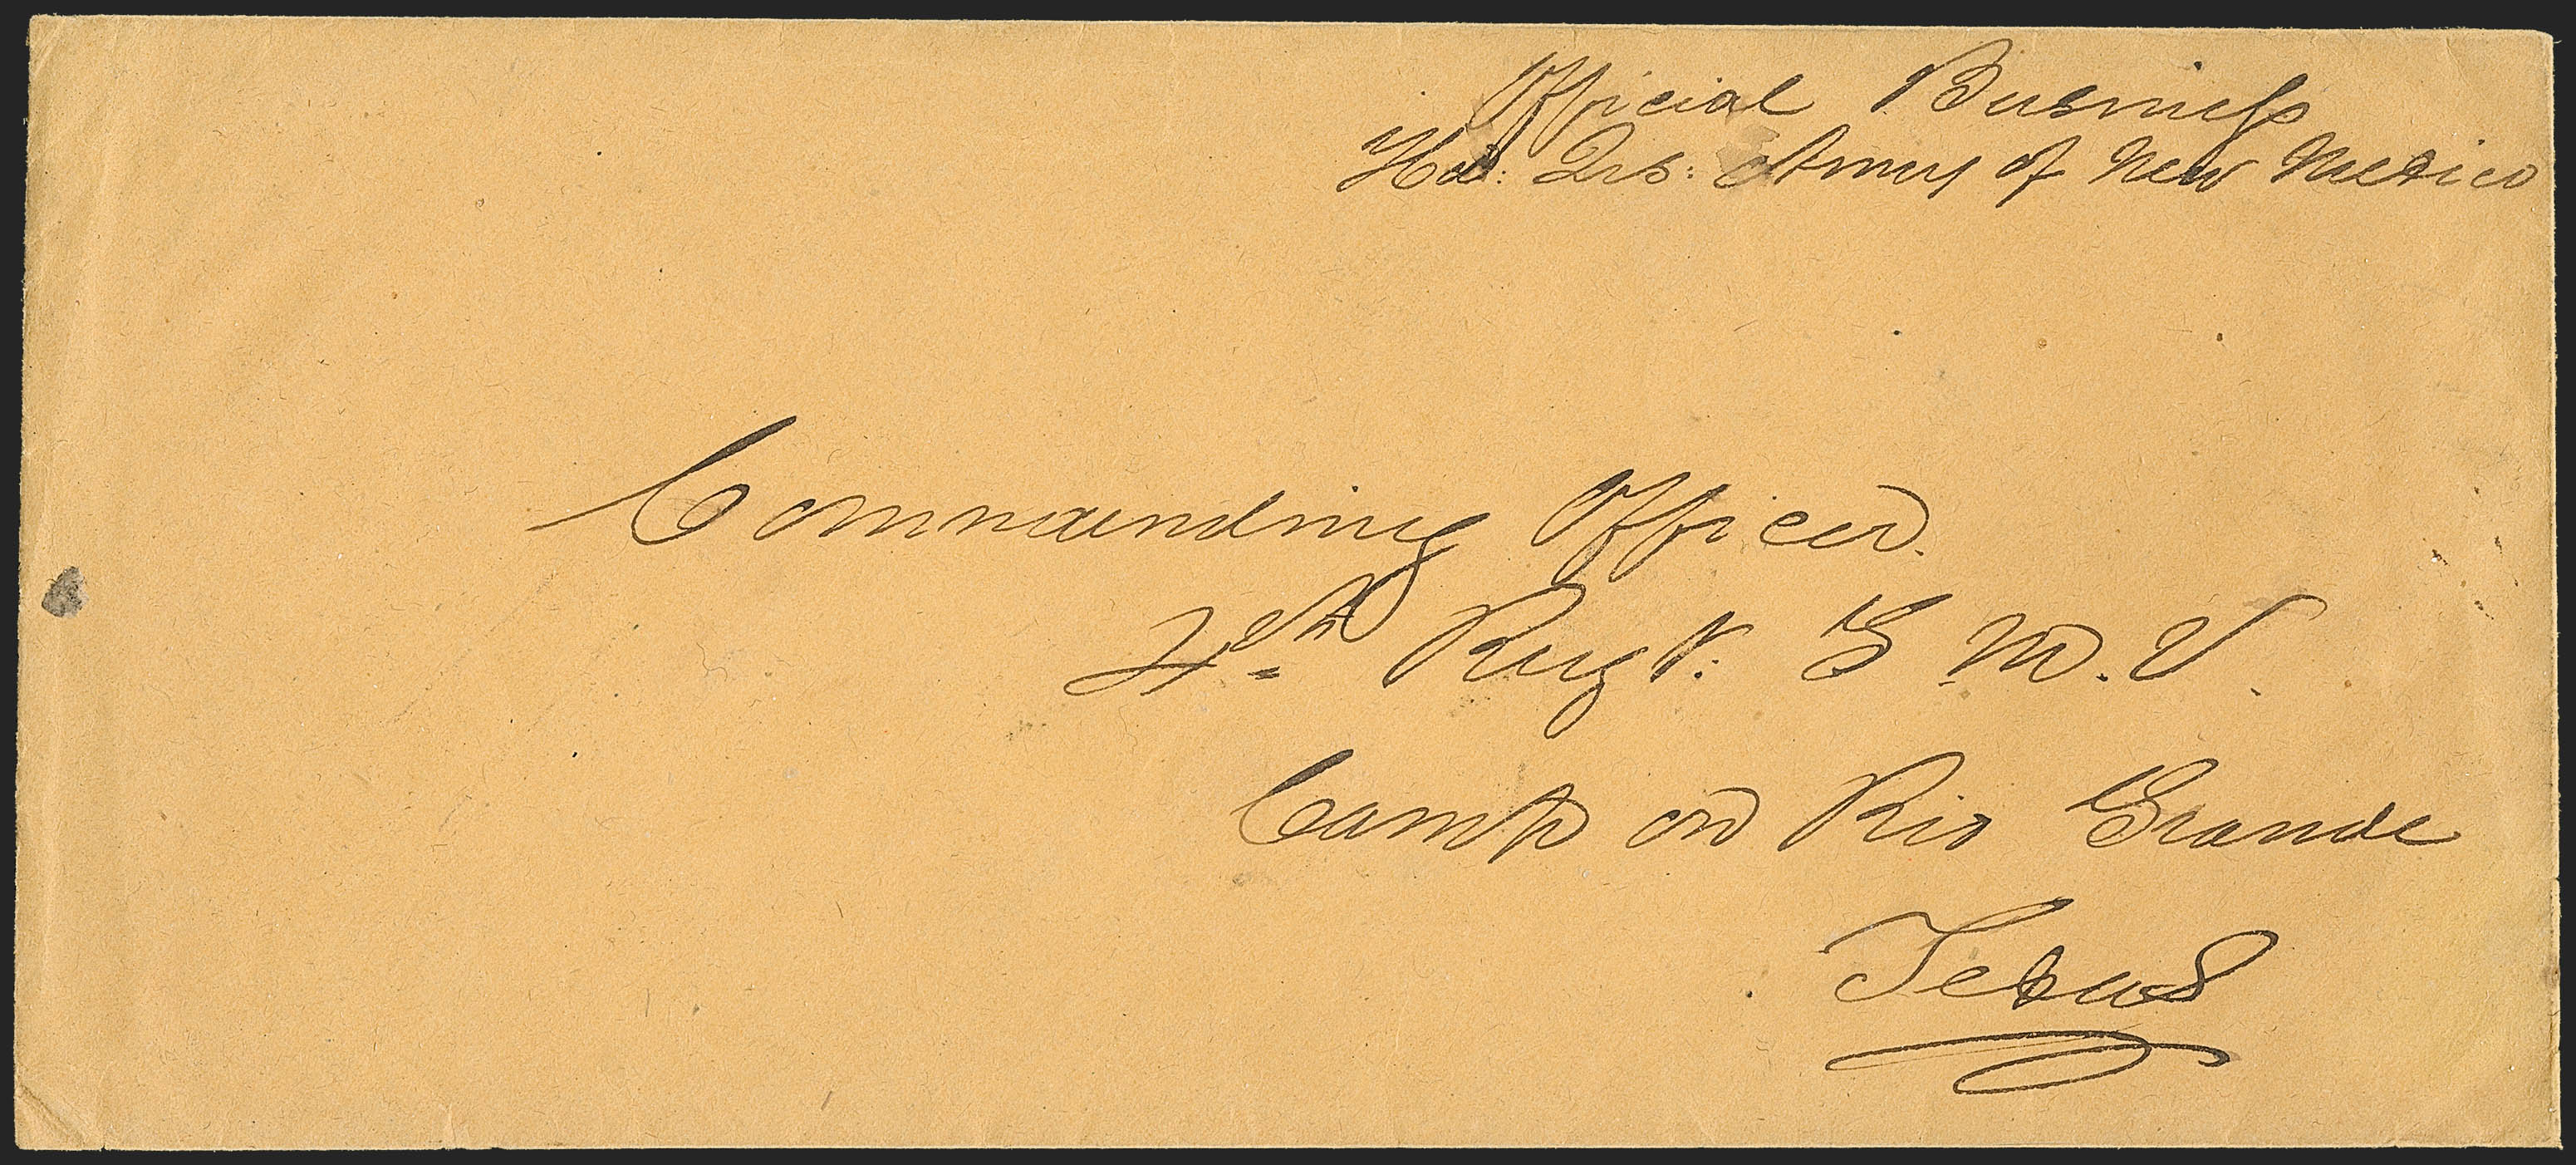 Official Business
Hd: Qrs: Army of New Mexico
Commanding Officer.
4th Regt: S. M. V.
Camp on Rio Grande
Texas